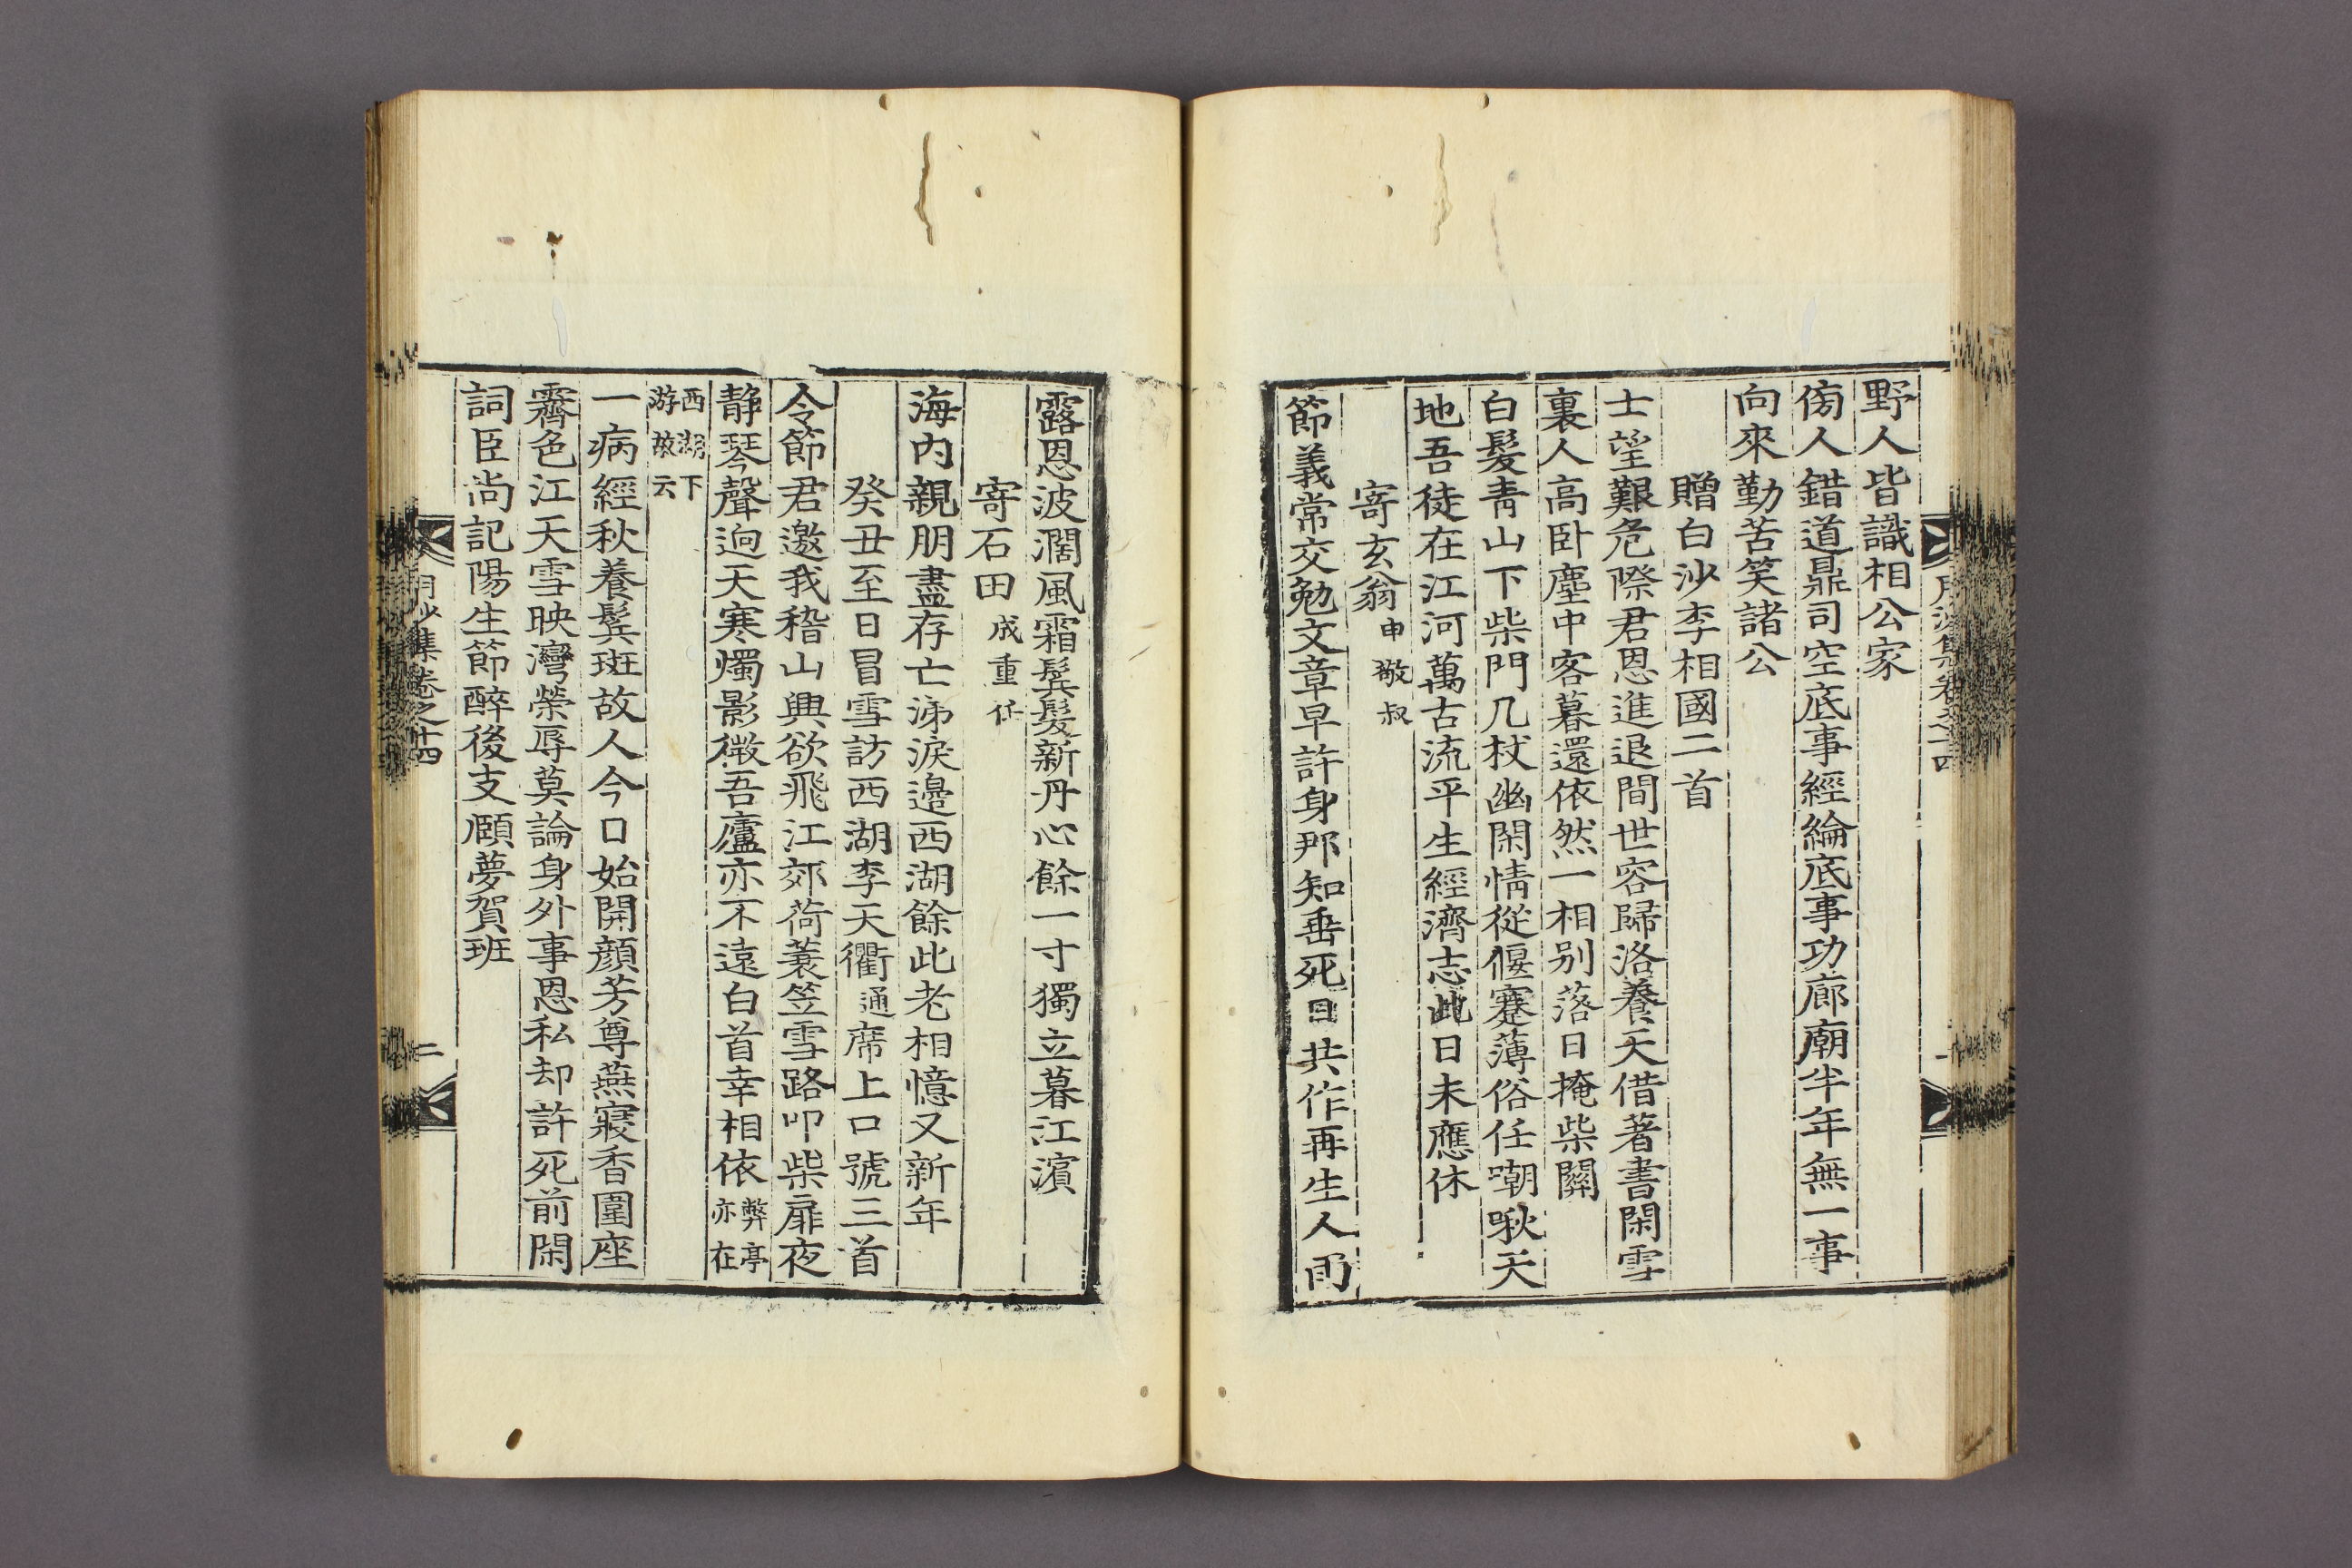 野人皆識相公家
傍人錯道鼎司空底事經綸底事功廊廟半年無一事
向來勤苦笑諸公
贈白沙李相國二首
士望艱危際君恩進退間世容歸洛養天借著書閑雪
裏人高卧塵中客暮還依然一相别落日掩柴關
白髮靑山下柴門几杖幽閑情從偃蹇薄俗任嘲啾天
地吾徒在江河萬古流平生經濟志此日未應休
寄玄翁申敬叔
節義常交勉文章早許身那知垂死日共作再生人雨
露恩波濶風霜鬂髮新丹心餘一寸獨立暮江濱
寄石田成重任
海內親朋盡存亡涕淚邊西湖餘此老相憶又新年
癸丑至日冒雪訪西湖李天衢通席上口號三首
令節君邀我稽山興欲飛江郊荷蓑笠雪路叩柴扉夜
静琴聲逈天寒燭影微吾廬亦不遠白首幸相依弊亭亦在
西湖下游故云
一病經秋養鬂斑故人今口始開顔芳尊燕寢香圍座
霽色江天雪映灣榮辱莫論身外事恩私却許死前閑
詞臣尚記陽生節醉後支頤夢賀班
月沙集卷之十四
二